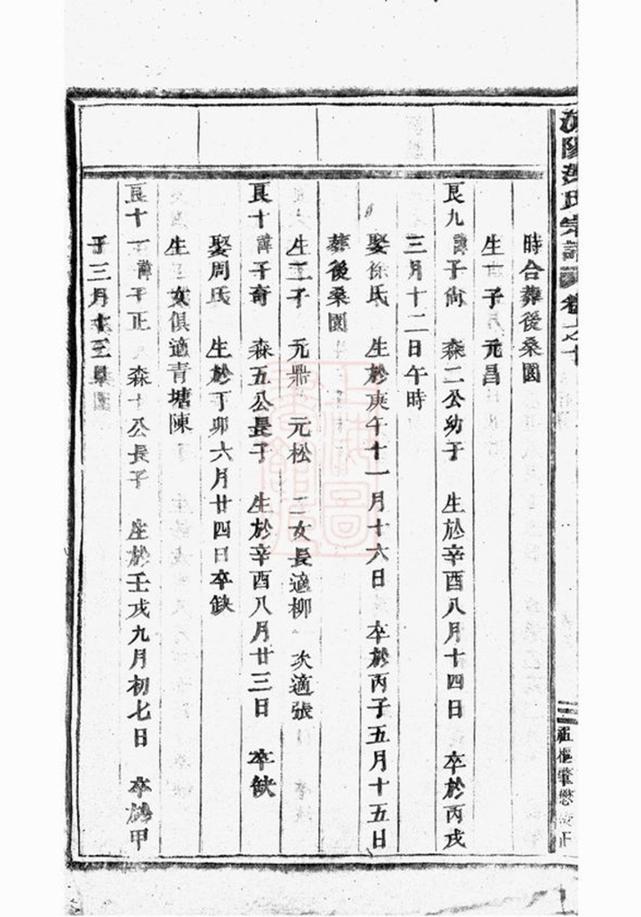 氏宗譜 卷之十
時合葬後桑園
生一子 元昌
良九 諱子尙 森二公幼子 生於辛酉八月十四日 卒於丙戌
三月十二日午時
娶徐氏 生於庚午十一月十六日 卒於丙子五月十五日
葬後桑園
生二子 元鼎 元松 二女長適柳 次適張
良十 諱子奇 森五公長子 生於辛酉八月廿三日 卒缺
娶周氏 生於丁卯六月廿四日卒缺
生 女俱適青塘陳
良十一 諱子正 森十公長子 生於壬戌九月初七日 卒於甲
子三月十三
上海圖書館藏